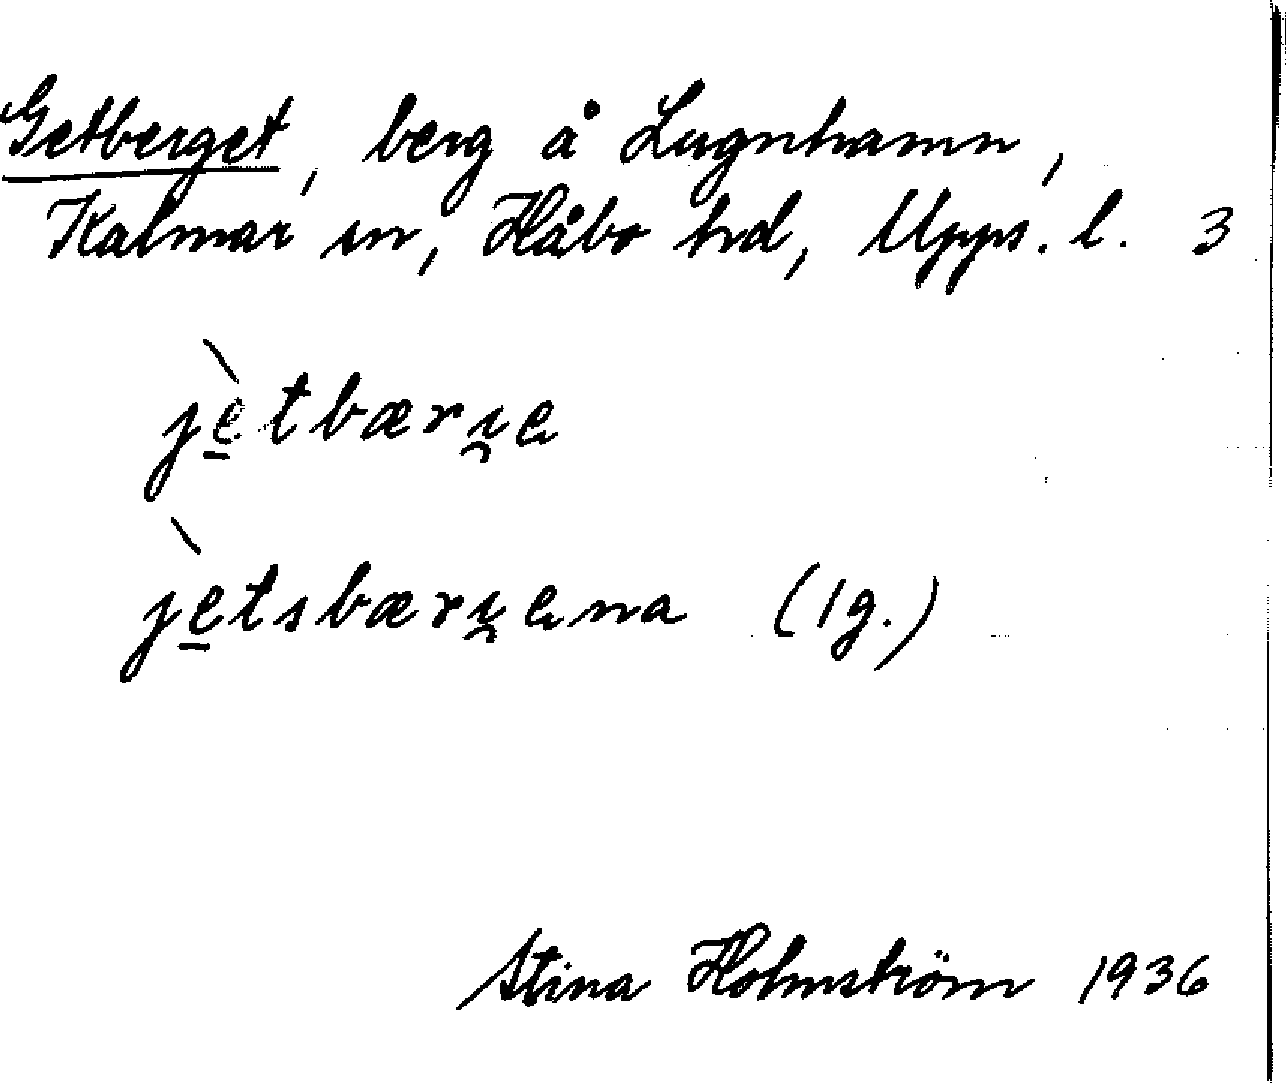 Getberget, berg å Lugnhamn,
Kalmar sn, Håbo hd, Upps. l. 3
jè̱tbærı̯e
jè̱tsbærı̯ena (lg.)
Stina Holmström 1936